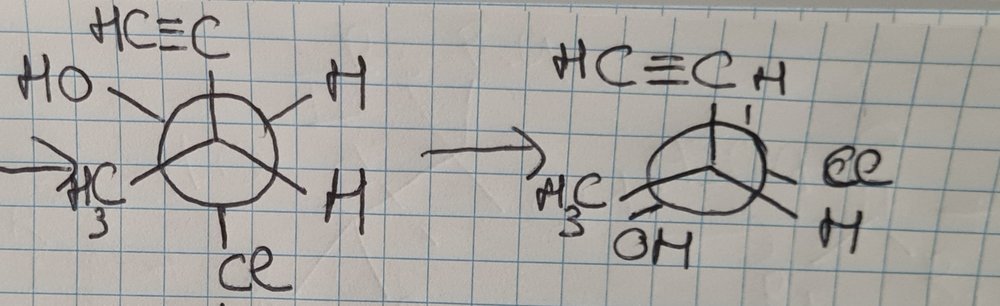 HC≡C
HO
H
H₃C
H
Cl
HC≡C
H
H₃C
Cl
OH
H